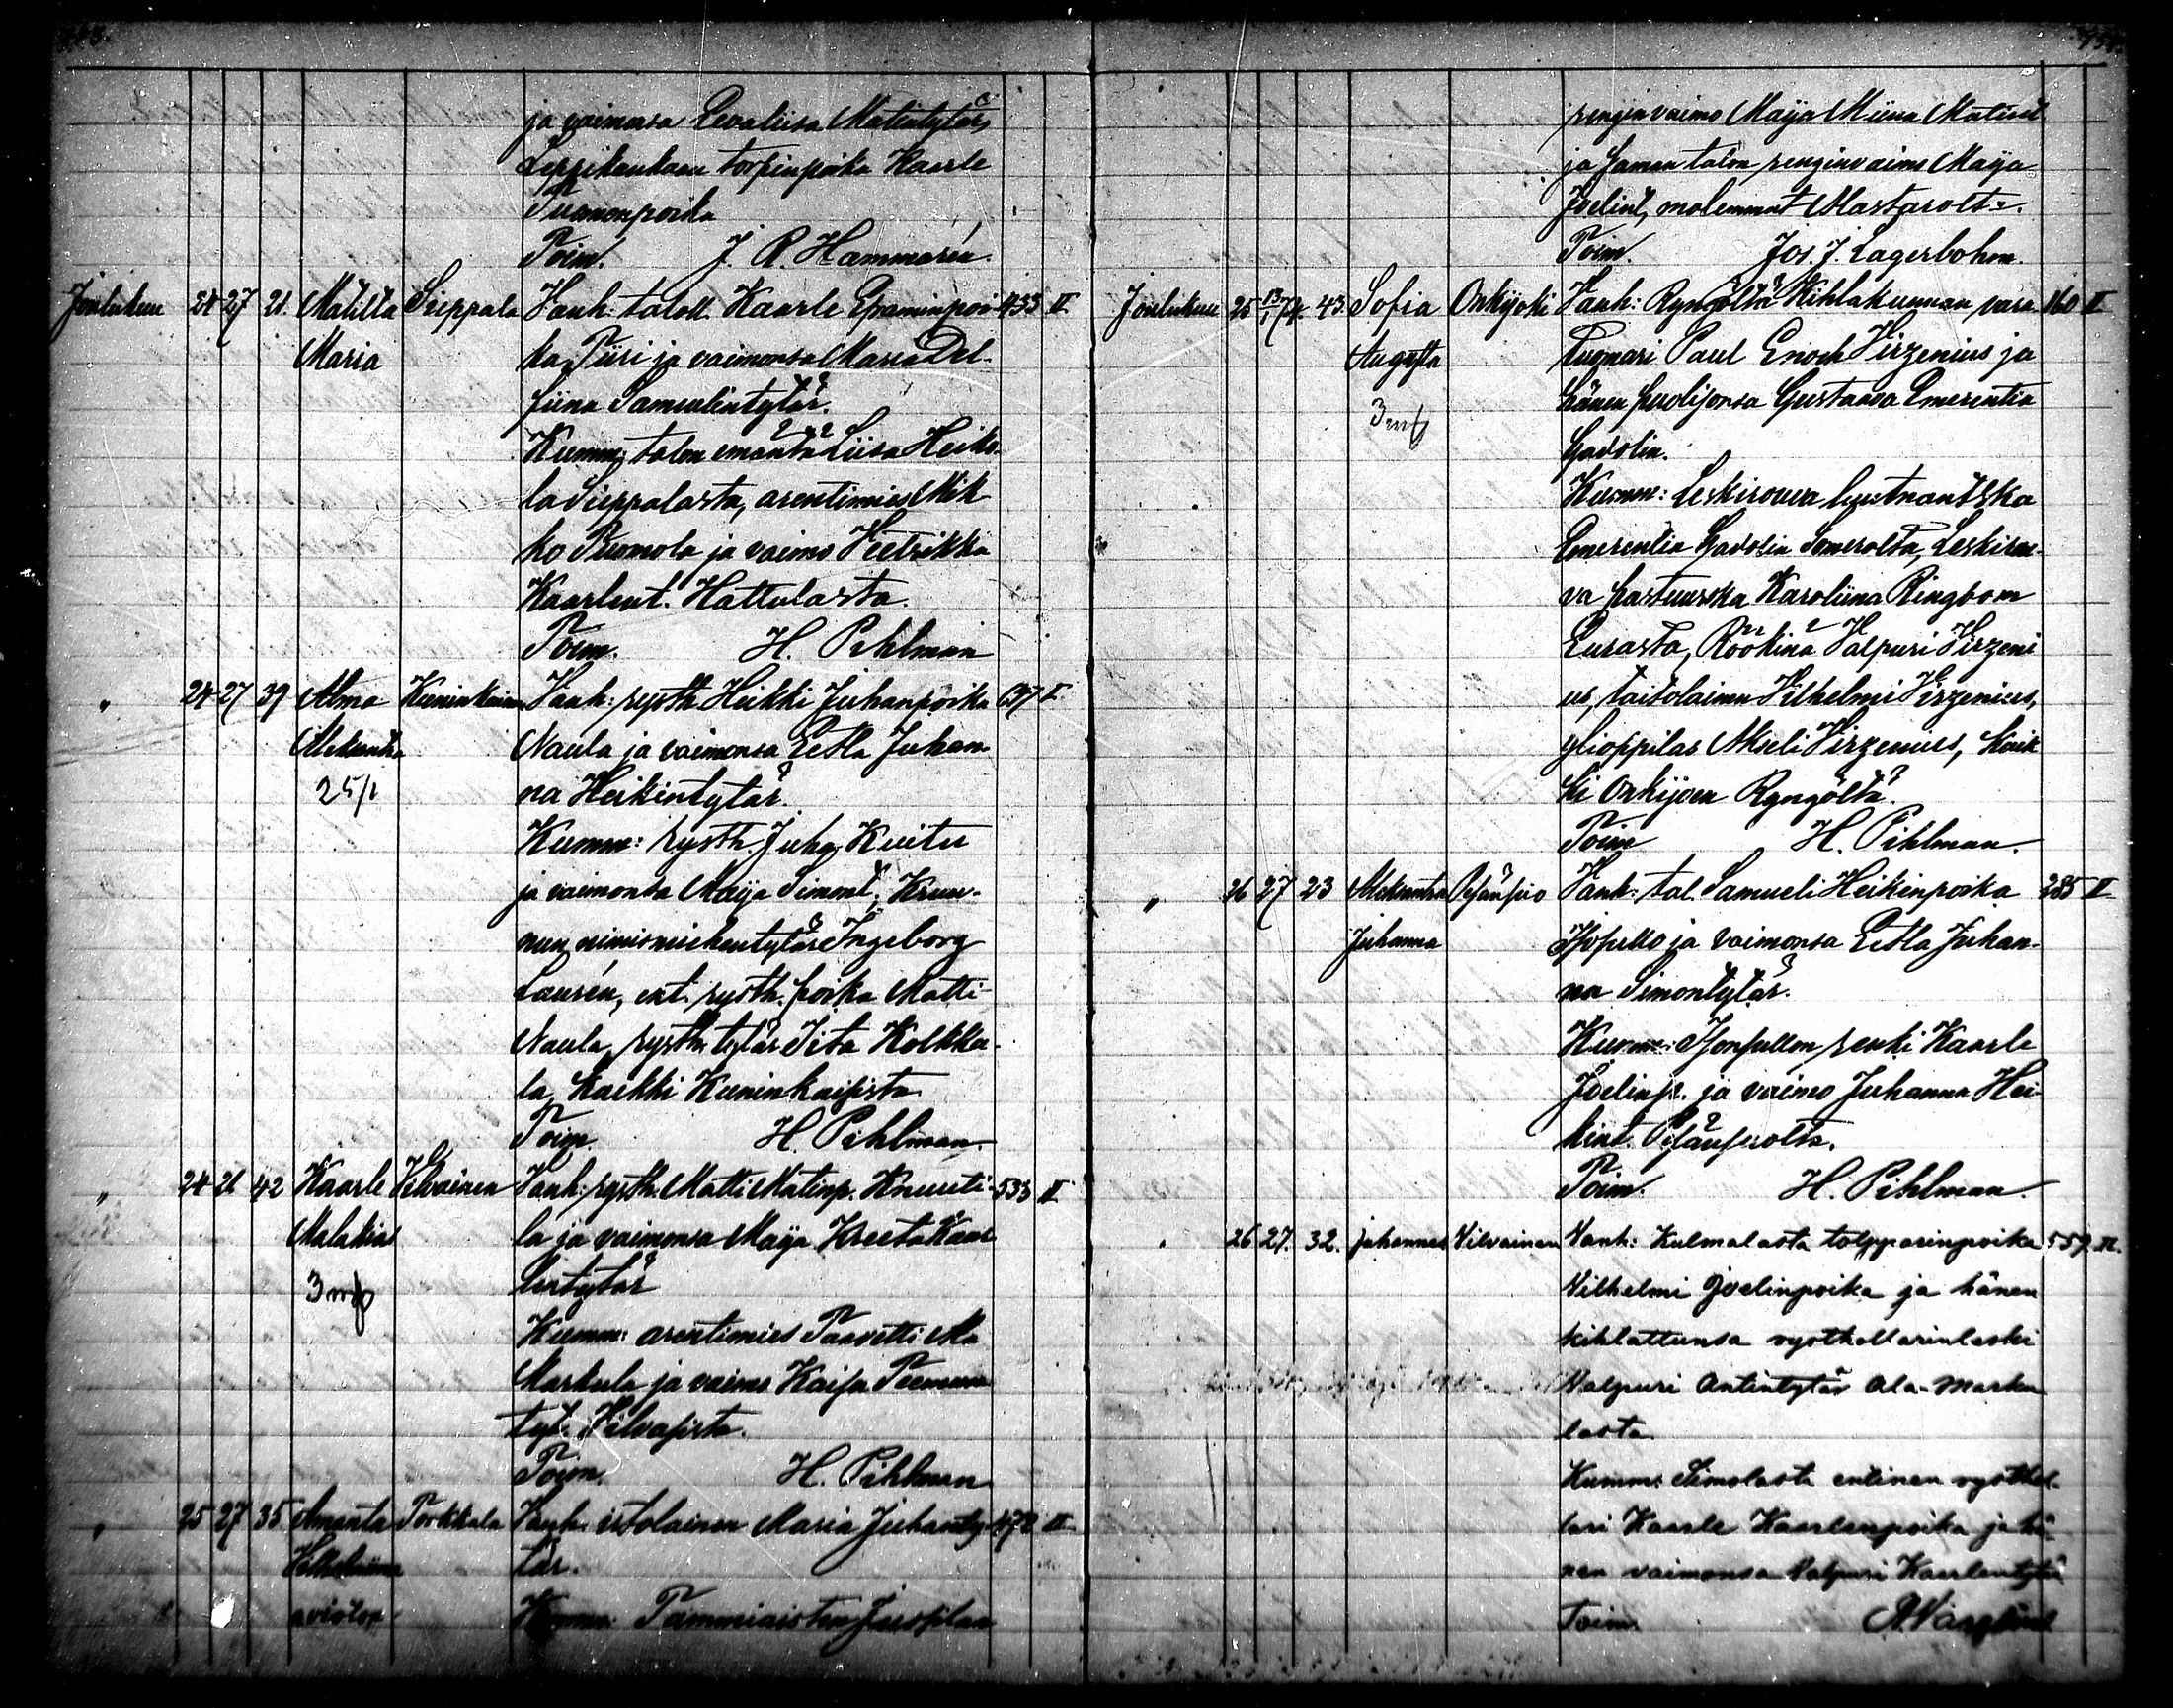 ja vaimonsa Eevaliisa Matintytär,
Leppikankaan torpinpoika Kaarle
Tuomonpoika
Toim. J. R. Hammarén.
Joulukuu 24 27 21. Matilta Sieppala Vanh: taloll. Kaarle Epraminpoi- 433 II
Maria ka Piiri ja vaimonsa Maria Del-
fiina Samuelintytär.
Kumm: talon emäntä Liisa Heik-
la Sieppalasta, arentimies Mik-
ko Tuomola ja vaimo Veetrikka
Kaarlent. Hattulasta.
Toim. H. Pihlman
" 24 27 39 Alma Kuninkainen Vanh: rysth. Heikki Juhanpoika 637 I
Aleksantra Naula ja vaimonsa Eetla Juhan-
25/1 na Heikintytär.
Kumm: rysth. Juha Kuitu
ja vaimonsa Maija Simont., Kruu-
nun nimismiehentytär Ingeborg
Laurén, ent. rysth. poika Matti
Naula, rysth. tytär Iita Kolkka-
la, kaikki Kuninkaisista
Toim. H. Pihlman.
" 24 21 42 Kaarle Vilvainen Vanh: rysth. Matti Matinp. Knuuti- 533 II
Malakias la ja vaimonsa Maija Kreeta Kaar-
lentytär
Kumm: arentimies Taavetti Ala
Markula ja vaimo Kaisa Tuomun
tyt. Vilvasista.
Toim. H. Pihlman
" 25 27 35 Amanta Porkkala Vanh: istolainen Maria Juhanty- 478 II
Vilhelmiina tär.
aviotoin Kumm: Tammiaisten Juspilan
rengin vaimo Maija Miina Matint.
ja saman talon renginvaimo Maija
Joelint, molemmat Alastarolta.
Toim. Jos. J. Lagerbohm.
Joulukuu 25 13/1 74 43. Sofia Orkijoki Vanh: Ryngöltä Kihlakunnan vara- 160 II
Augusta tuomari Paul Enoch Virzenius ja
hänen puolisonsa Gustaava Emerentia
Gadolin.
Kumm: Leskirouva luutnantska
Emerentia Gadolin Somerolta, Leskirou-
va pastuurska Karoliina Ringbom
Eurasta, Röökinä Valpuri Virzeni
us, taitolainen Vilhelmi Virzenius,
ylioppilas Akseli Virzenius, kaik
ki Orkijoen Ryngöltä.
Toim H. Pihlman.
" 26 27 23 Aleksantra Vanh: tal. Samueli Heikinpoika 285 II
Juhanna ja vaimonsa Eetla Juhan-
na Simontytär.
Kumm: renki Kaarle
Joelinp. ja vaimo Juhanna Hei-
kint.
Toim. H. Pihlman.
" 26 27. 32. Johannes Vilvainen Vanh: Kulmalasta tolpparinpoika 559 II.
Vilhelmi Joelinpoika ja hänen
kihlattunsa rysthollarinleski
Valpuri Antintytär Ala-Marku
lasta.
Kumm: Simolasta entinen rysthol-
lari Kaarle Kaarlenpoika ja hä-
nen vaimonsa Valpuri Kaarlentytär
Toim.